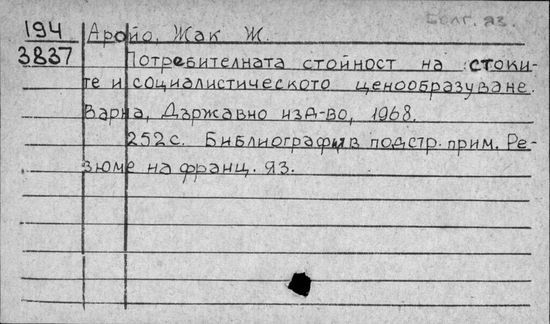 Болг. яз.
194 Аройо, Жак Ж.
3837 Потребителната стойност на стоки-
те и социалистическото ценообразуване.
Варна, Държавно изд-во, 1968.
252 с. Библиография в подстр. прим. Ре-
зюме на франц. яз.